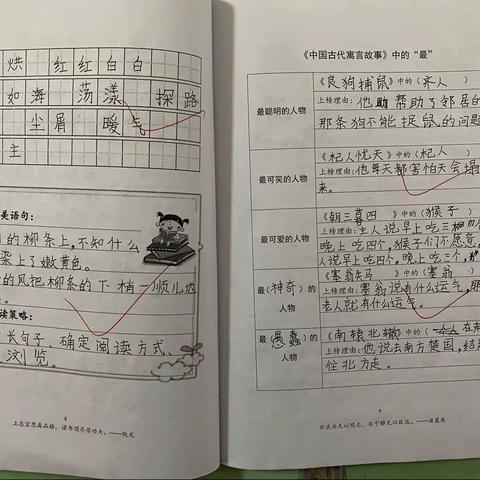 烘 红红白白
如海 荡漾 探路
尘屑 暖气
主
美语句:
的柳条上,不知什么
染上了嫩黄色。
的风把柳条的下梢一顺儿地
读策略:
长句子、确定阅读方式、
浏览。
8
立志宜思真品格,读书须尽苦功夫。——阮元
《中国古代寓言故事》中的“最”
最聪明的人物
《良狗捕鼠》中的(齐人)
上榜理由:他助帮助了邻居的
那条狗不能捉鼠的问题
最可笑的人物
《杞人忧天》中的(杞人)
上榜理由:他每天都害怕天会塌
来。
最可爱的人物
《朝三暮四》中的(猴子)
上榜理由:主人说早上吃三
晚上吃四个,猴子们不愿意,
人说早上吃四个,晚上吃三个,
最(神奇)的人物
《塞翁失马》中的(塞翁)
上榜理由:塞翁说有什么运气,那
老人就有什么运气。
最(愚蠢)的人物
《南辕北辙》中的(
上榜理由:他说去南方楚国,结
往北方走。
9
非淡泊无以明志,非宁静无以致远。——诸葛亮